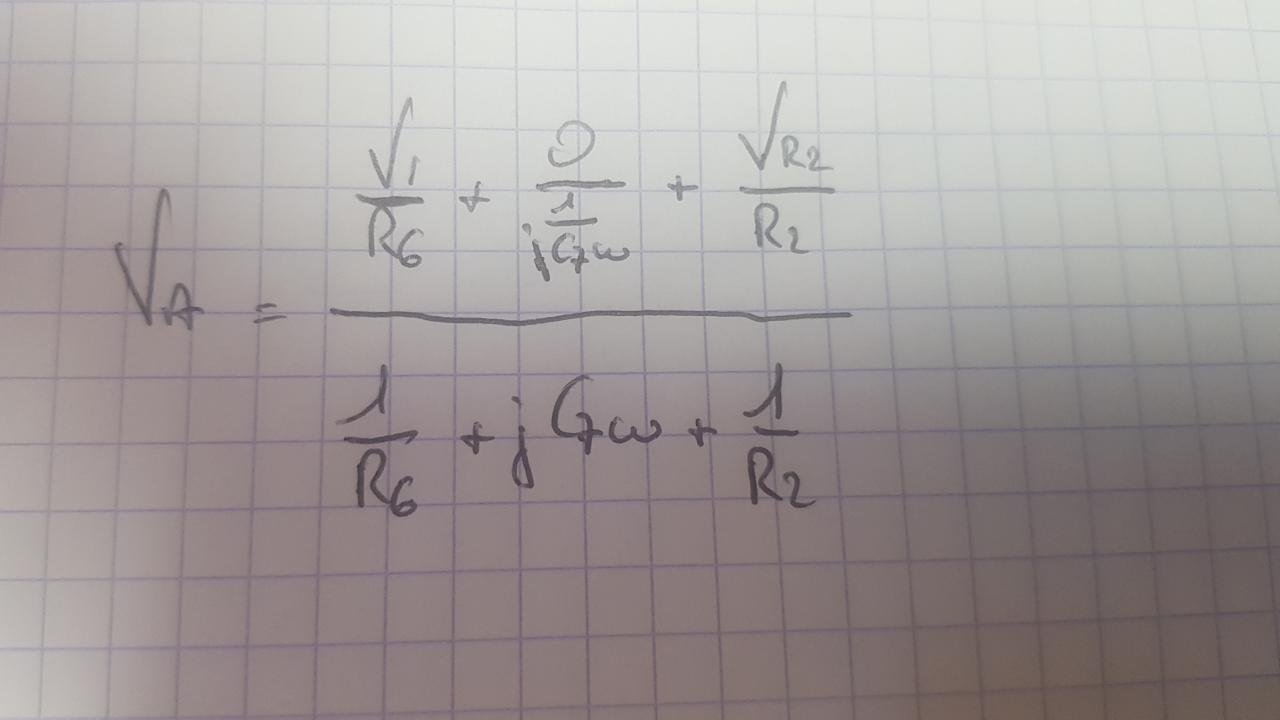 V_A = (V_1/R_6 + 0/(1/(jC_7ω)) + V_R2/R_2) / (1/R_6 + jC_7ω + 1/R_2)